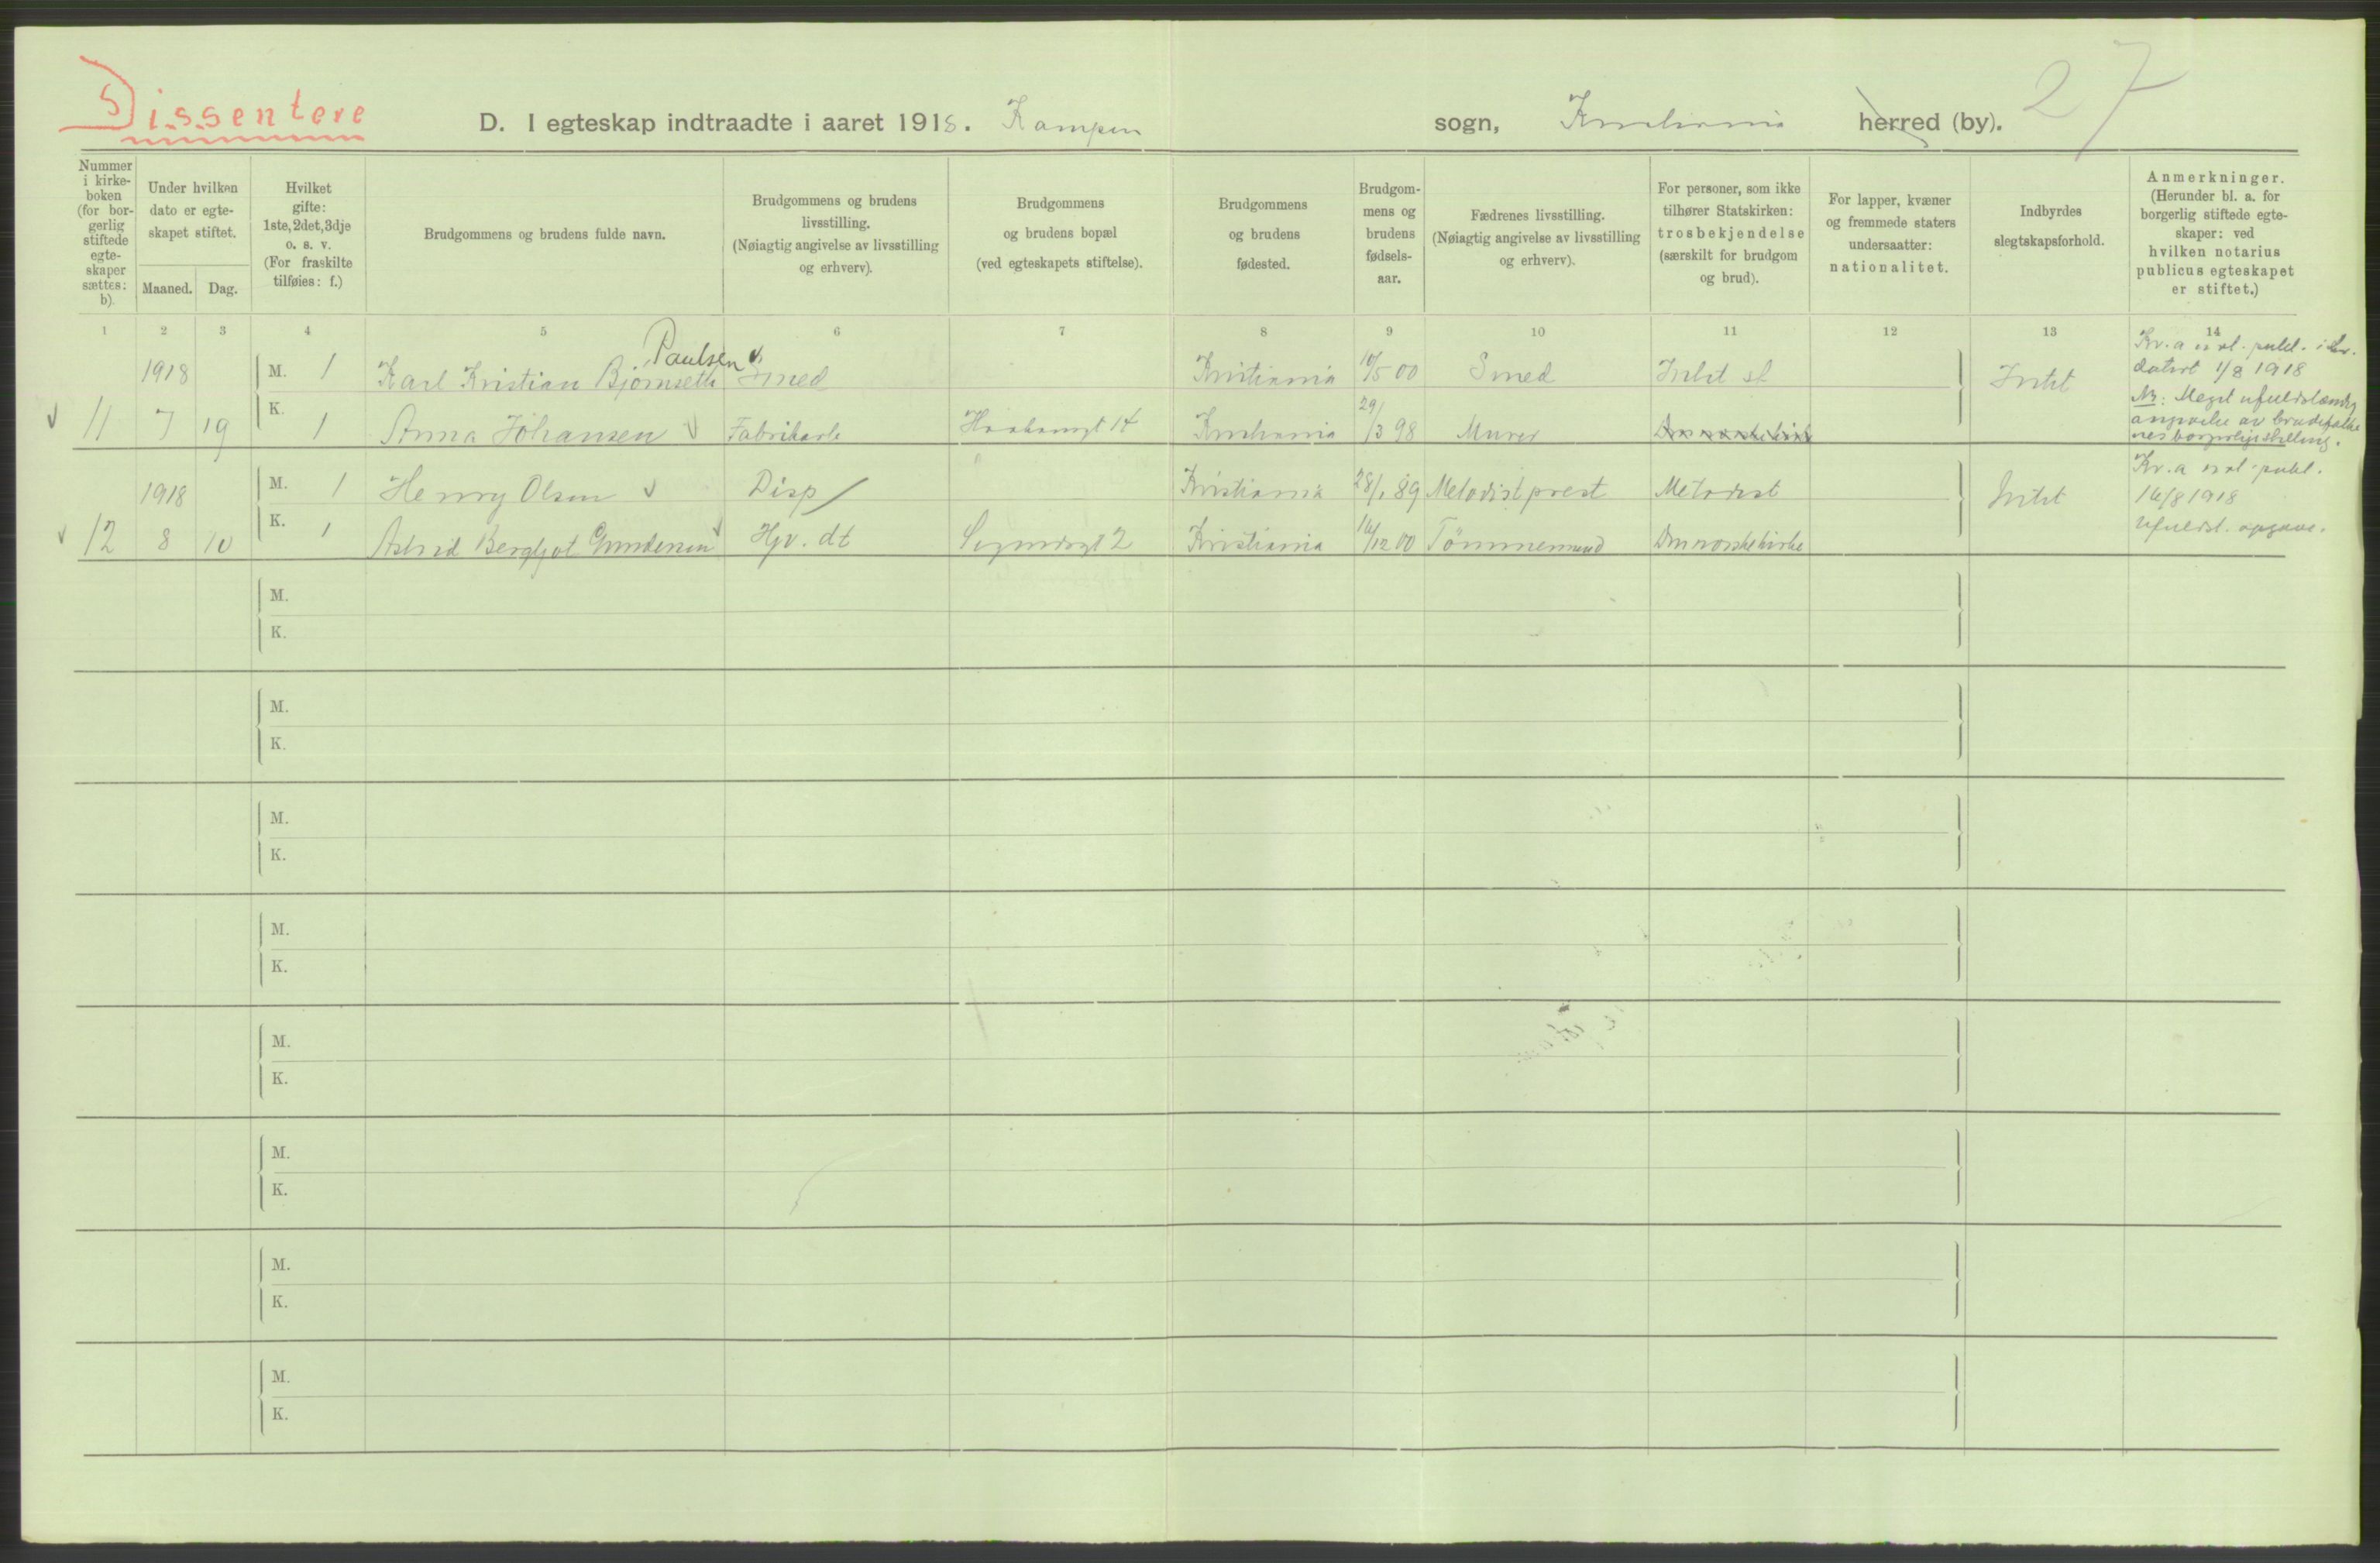 Dissentere
D. I egteskap indtraadte i aaret 1918. Kampen sogn, Kristiania herred (by). 27
Nummer i kirke-boken (for bor-gerlig stiftede egte-skaper sættes: b).
Under hvilken dato er egte-skapet stiftet.
Maaned. Dag.
Hvilket gifte: 1ste, 2det, 3dje o. s. v. (For fraskilte tilføies: f.)
Brudgommens og brudens fulde navn.
Brudgommens og brudens livsstilling. (Nøiagtig angivelse av livsstilling og erhverv).
Brudgommens og brudens bopæl (ved egteskapets stiftelse).
Brudgommens og brudens fødested.
Brudgom-mens og brudens fødsels-aar.
Fædrenes livsstilling. (Nøiagtig angivelse av livsstilling og erhverv).
For personer, som ikke tilhører Statskirken: trosbekjendelse (særskilt for brudgom og brud).
For lapper, kvæner og fremmede staters undersaatter: nationalitet.
Indbyrdes slegtskapsforhold.
Anmerkninger. (Herunder bl. a. for borgerlig stiftede egte-skaper: ved hvilken notarius publicus egteskapet er stiftet.)
1 2 3 4 5 6 7 8 9 10 11 12 13 14
1918 M. 1 Karl Kristian Bjørnseth Paulsen Smed Kristiania 10/5 00 Smed Intet Intet
11 7 19 K. 1 Anna Johansen Kristiania 29/3 98 Murer Den norske kirke
datert 1/8 1918
NB: Meget ufuldstændig
angivelse av brudefolke
nes borgerlige stilling.
1918 M. 1 Henry Olsen Disp Kristiania 28/1 89 Metodistprest Metodist Intet
12 8 10 K. 1 Astrid Bergljot Gundersen Hjv. dt Kristiania 16/12 00 Tømmermand Den norske kirke
Kr.a not. publ.
16/8 1918
Ufuldst. opgave.
M.
K.
M.
K.
M.
K.
M.
K.
M.
K.
M.
K.
M.
K.
M.
K.